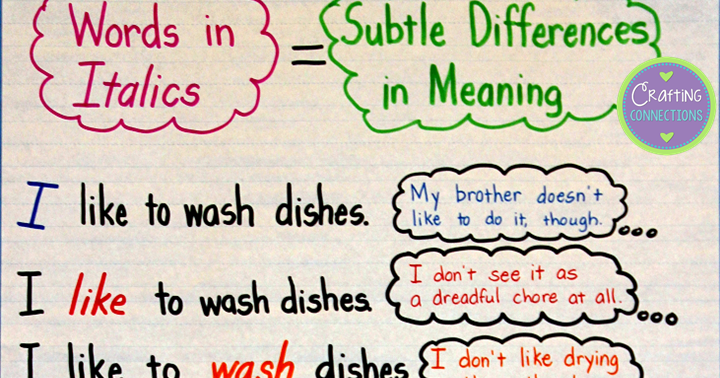 Words in
Italics
=
Subtle Differences
in Meaning
Crafting
CONNECTIONS
I like to wash dishes.
My brother doesn't
like to do it, though.
I like to wash dishes
I don't see it as
a dreadful chore at all.
I like to wash dishes
I don't like drying